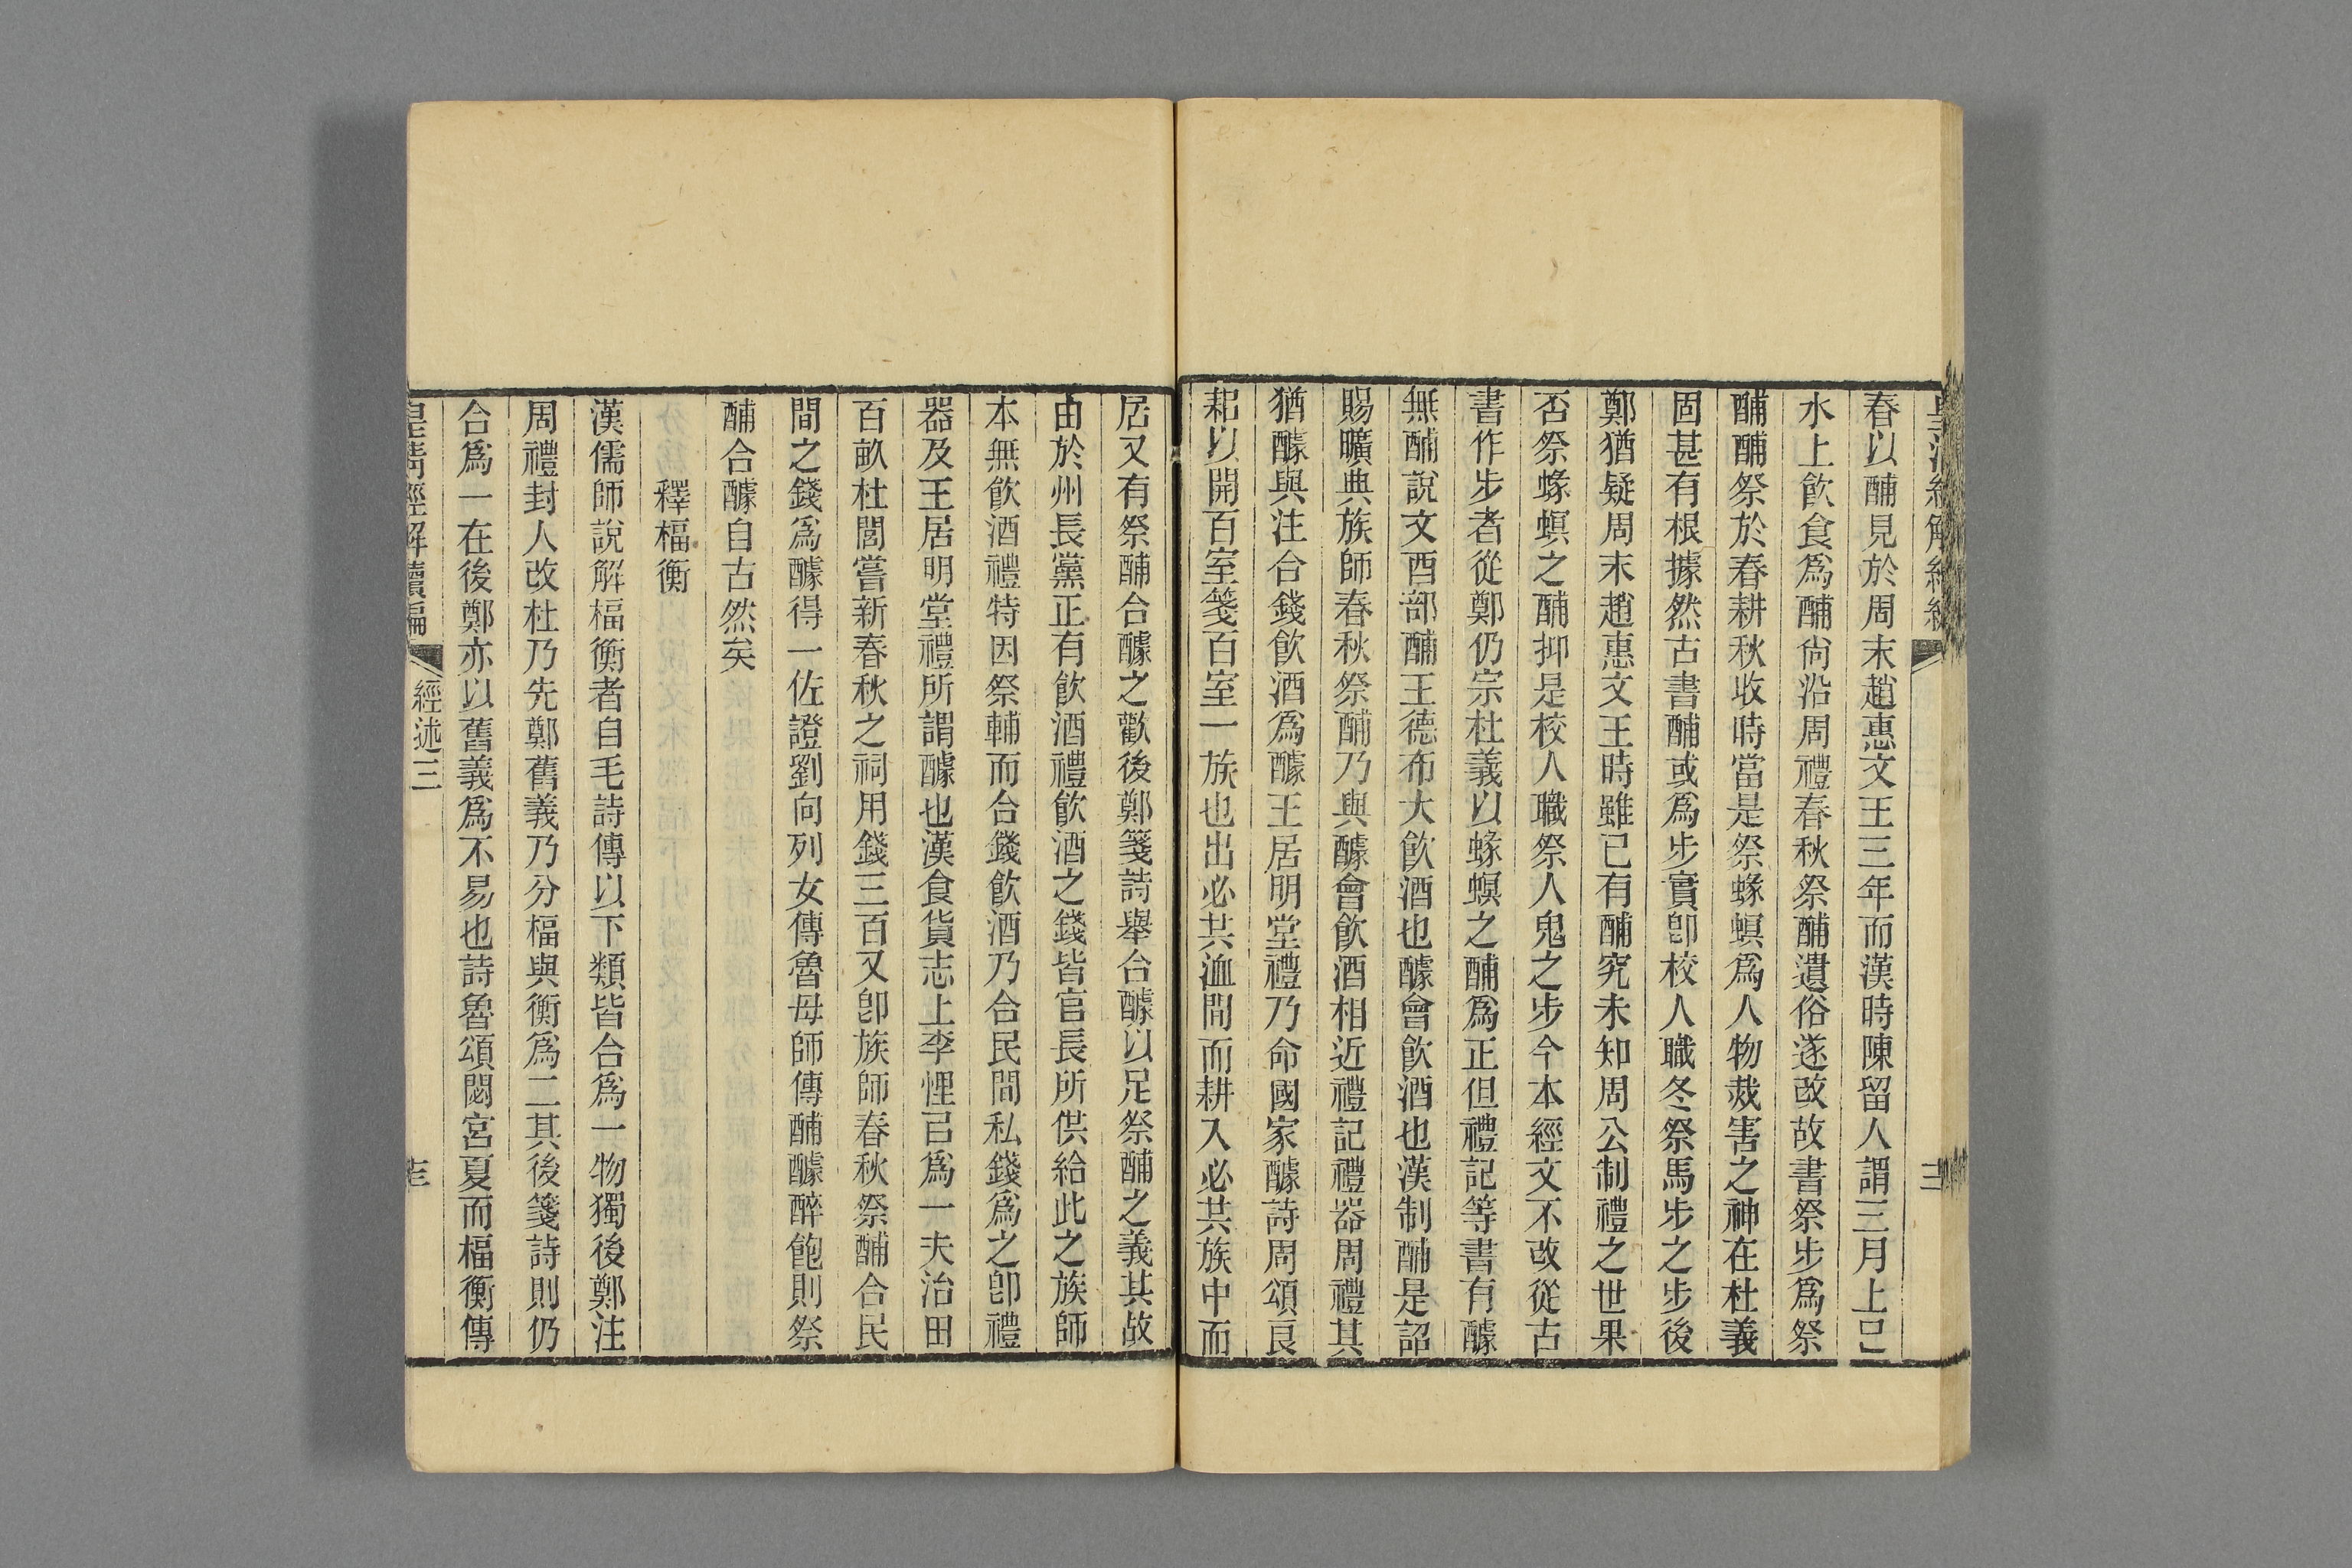 春以酺見於周末趙惠文王三年而漢時陳留人謂三月上巳
水上飮食爲酺尙沿周禮春秋祭酺遺俗遂改故書祭步爲祭
酺酺祭於春耕秋收時當是祭蝝螟爲人物烖害之神在杜義
固甚有根據然古書酺或爲步實卽校人職冬祭馬步之步後
鄭猶疑周末趙惠文王時雖已有酺究未知周公制禮之世果
否祭蝝螟之酺抑是校人職祭人鬼之步今本經文不改從古
書作步者從鄭仍宗杜義以蝝螟之酺爲正但禮記等書有醵
無酺說文酉部酺王德布大飮酒也醵會飮酒也漢制酺是詔
賜曠典族師春秋祭酺乃與醵會飮酒相近禮記禮器周禮其
猶醵與注合錢飮酒爲醵王居明堂禮乃命國家醵詩周頌良
耜以開百室箋百室一族也出必共洫間而耕入必共族中而
居又有祭酺合醵之歡後鄭箋詩舉合醵以足祭酺之義其故
由於州長黨正有飮酒禮飮酒之錢皆官長所供給此之族師
本無飮酒禮特因祭輔而合錢飮酒乃合民間私錢爲之卽禮
器及王居明堂禮所謂醵也漢食貨志上李悝已爲一夫治田
百畝杜閭嘗新春秋之祠用錢三百又卽族師春秋祭酺合民
間之錢爲醵得一佐證劉向列女傳魯母師傳酺醵醉飽則祭
酺合醵自古然矣
釋楅衡
漢儒師說解楅衡者自毛詩傳以下類皆合爲一物獨後鄭注
周禮封人改杜乃先鄭舊義乃分楅與衡爲二其後箋詩則仍
合爲一在後鄭亦以舊義爲不易也詩魯頌閟宮夏而楅衡傳
皇淸經解續編
經述三